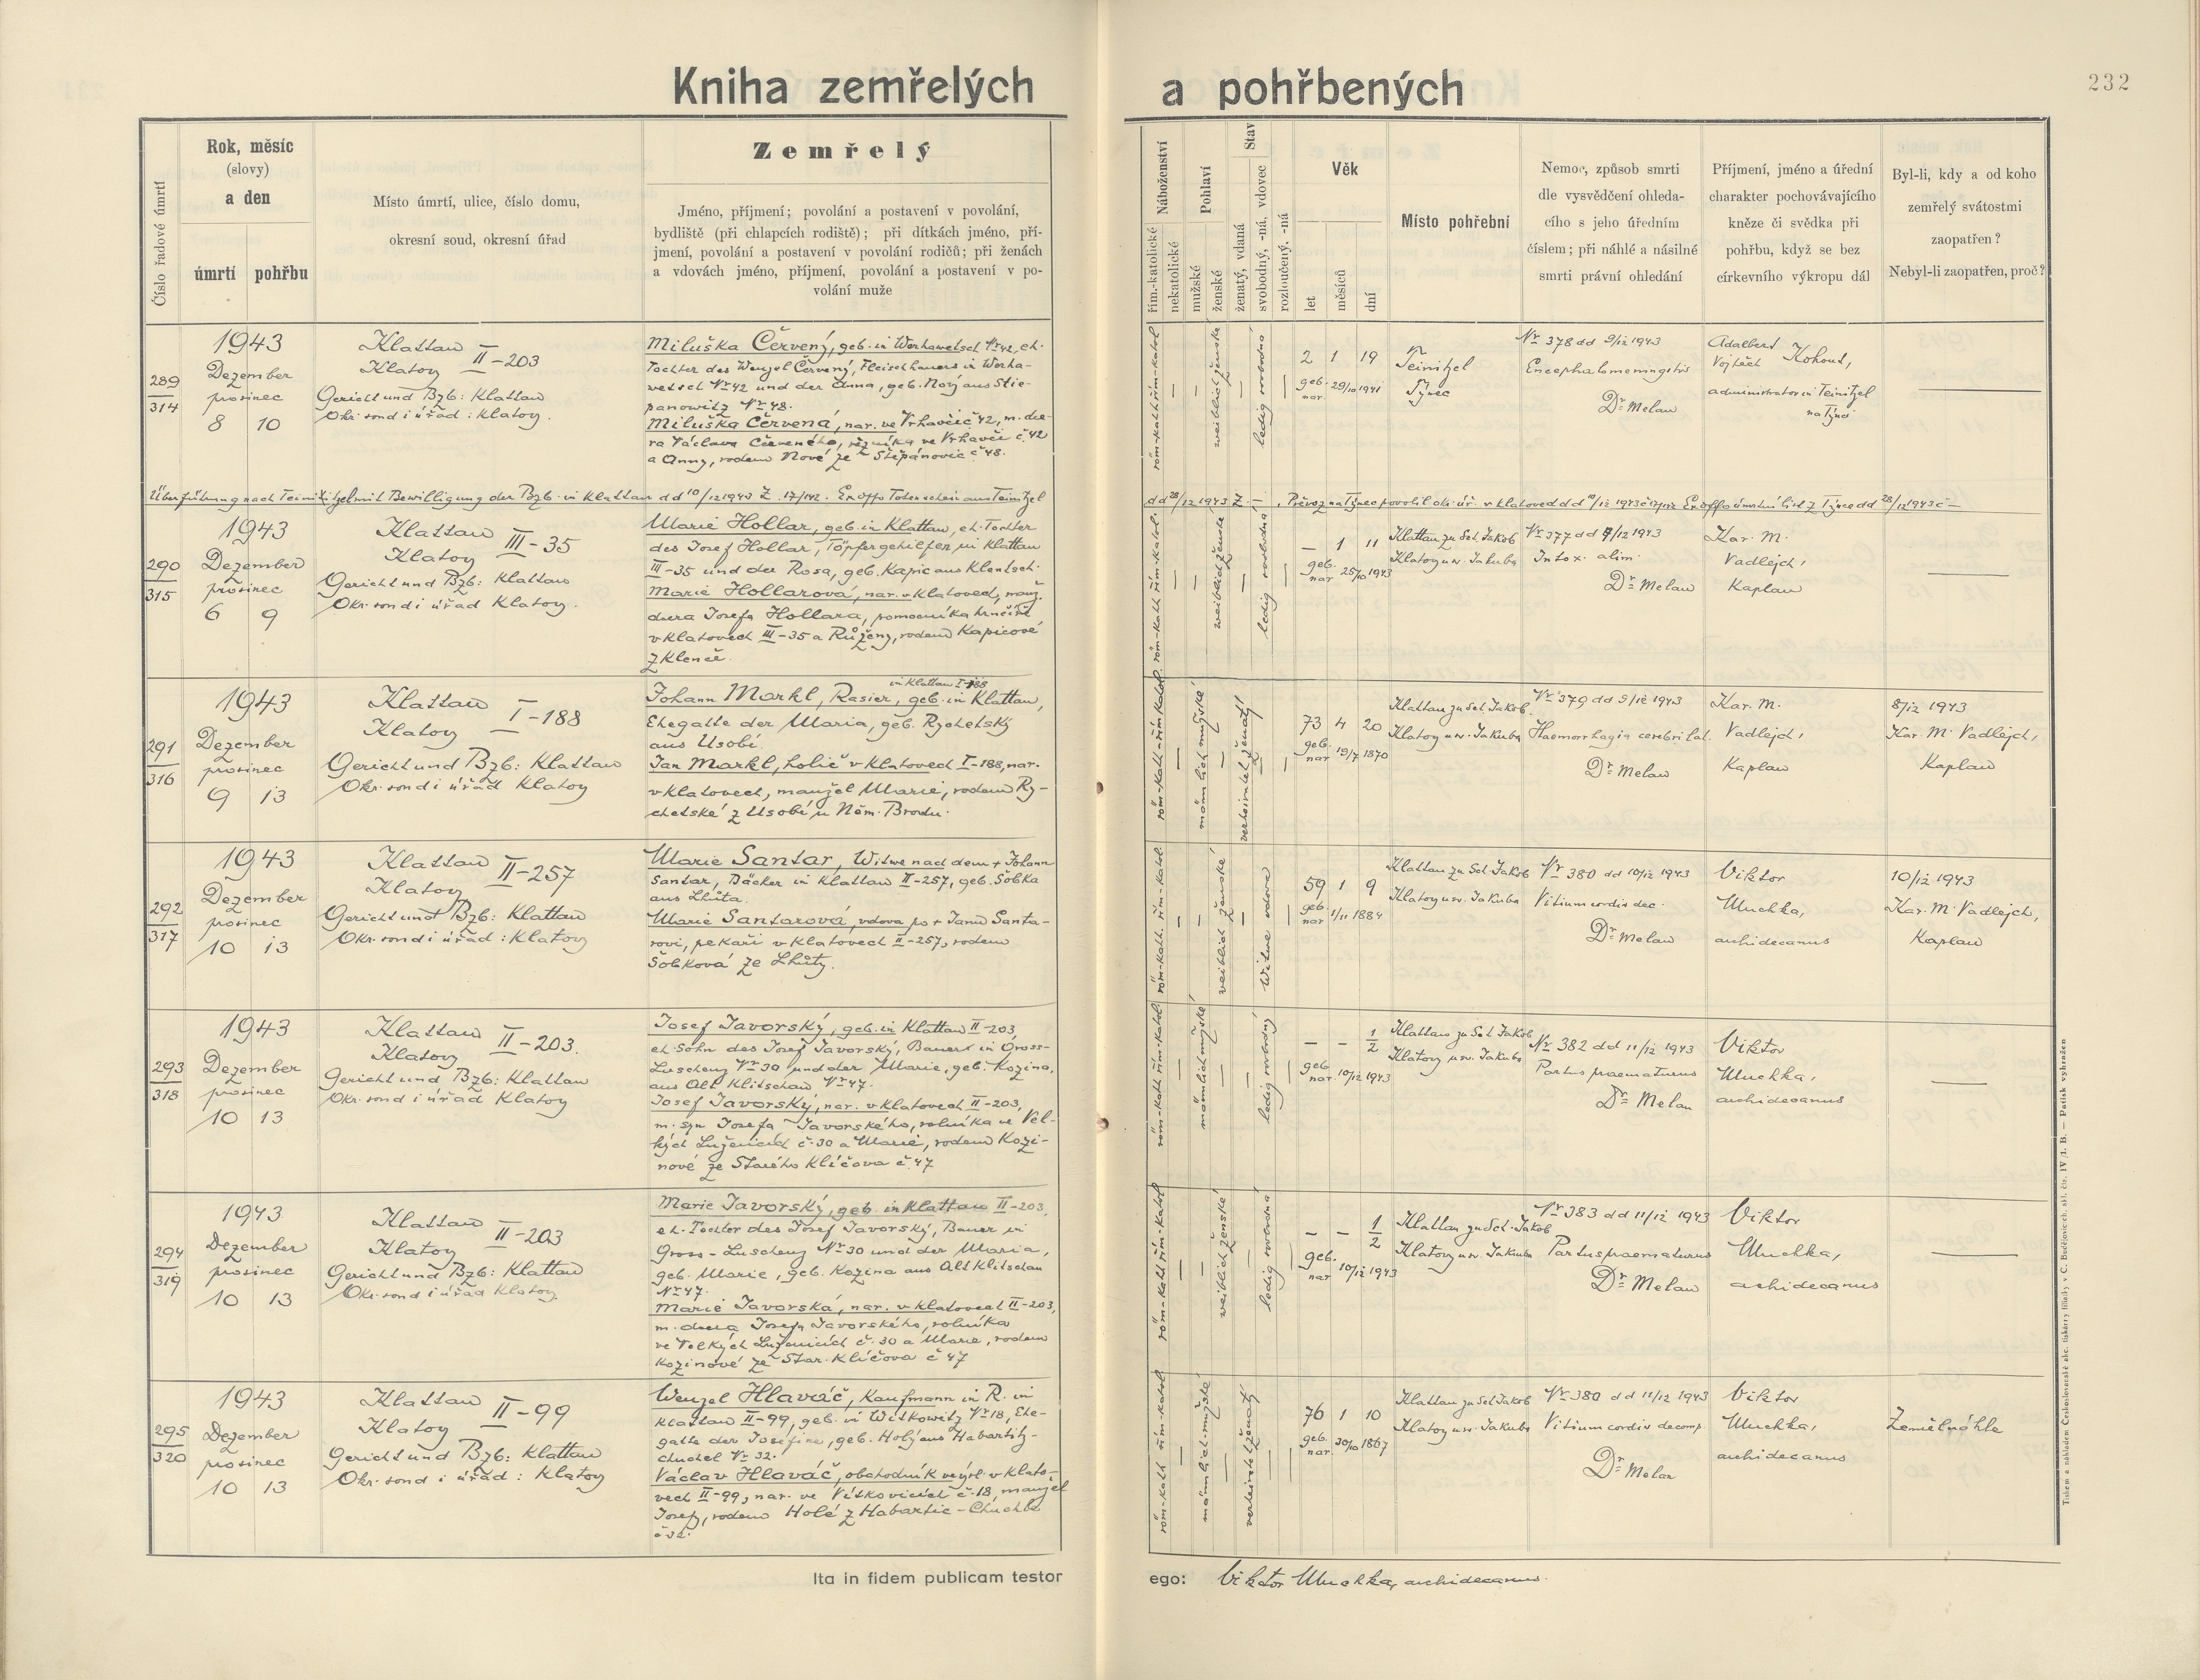 Kniha zemřelých a pohřbených
232
Číslo řadové úmrtí
Rok, měsíc
(slovy)
a den
úmrtí pohřbu
Místo úmrtí, ulice, číslo domu,
okresní soud, okresní úřad
Zemřelý
Jméno, příjmení; povolání a postavení v povolání,
bydliště (při chlapcích rodiště); při dítkách jméno, pří-
jmení, povolání a postavení v povolání rodičů; při ženách
a vdovách jméno, příjmení, povolání a postavení v po-
volání muže
Náboženství
řím.-katolické
nekatolické
Pohlaví
mužské
ženské
Stav
ženatý, vdaná
svobodný, -ná, vdovec
rozloučený, -ná
Věk
let
měsíců
dní
Místo pohřební
Nemoc, způsob smrti
dle vysvědčení ohleda-
cího s jeho úředním
číslem; při náhlé a násilné
smrti právní ohledání
Příjmení, jméno a úřední
charakter pochovávajícího
kněze či svědka při
pohřbu, když se bez
církevního výkropu dál
Byl-li, kdy a od koho
zemřelý svátostmi
zaopatřen?
Nebyl-li zaopatřen, proč?
289
314
1943
Dezember
prosinec
8 10
Klattau II-203
Klatovy
Gericht und Bzb: Klattau
Okr. soud i úřad: Klatovy.
Miluška Červený, geb. in Werhawetsch Nr 42, eh.
Tochter des Wenzel Červený, Fleischhauers in Werha-
wetsch Nr 42 und der Anna, geb. Nový aus Stie-
panowitz Nr 48.
Miluška Červená, nar. ve Vrhavči č 42, m. dce-
ra Václava Červeného, řezníka ve Vrhavči č. 42
a Anny, rodem Nové ze Štěpánovic č 48.
röm-kath řím-katol
weiblich ženské
ledig svobodná
2 1 19
geb. nar. 29/10 1941
Teinitzl
Týnec
Nr 378 dd 9/12 1943
Encephalomeningitis
Dr Melan
Adalbert
Vojtěch Kohout,
administrator in Teinitzl
na Týnci
Überführung nach Teinitzl mit Bewilligung der Bzb. in Klattau dd 10/12 1943 Z. 17/142. Ex offo Totenschein aus Teinitzl
dd 28/12 1943 Z. —. Převoz na Týnec povolil okr. úř. v Klatovech dd 10/12 1943 č 17/142 Ex offo úmrtní list z Týnce dd 28/12 1943 č —
290
315
1943
Dezember
prosinec
6 9
Klattau III-35
Klatovy
Gericht und Bzb: Klattau
Okr. soud i úřad Klatovy.
Marie Hollar, geb. in Klattau, eh. Tochter
des Josef Hollar, Töpfergehilfen in Klattau
III-35 und der Rosa, geb. Kapic aus Klentsch.
Marie Hollarová, nar. v Klatovech, manž.
dcera Josefa Hollara, pomocníka hrnčíře
v Klatovech III-35 a Růženy, rodem Kapicové
z Klenče.
röm-kath řím-katol.
weiblich ženské
ledig svobodná
— 1 11
geb. nar 25/10 1943
Klattau zu Sct Jakob
Klatovy u sv. Jakuba
Nr 377 dd 9/12 1943
Intox. alim.
Dr Melan
Kar. M.
Vadlejch,
Kaplan
291
316
1943
Dezember
prosinec
9 13
Klattau I-188
Klatovy
Gericht und Bzb: Klattau
Okr. soud i úřad Klatovy
in Klattau I-188
Johann Markl, Rasier, geb. in Klattau,
Ehegatte der Maria, geb. Rychetský
aus Usobí.
Jan Markl, holič v Klatovech I-188, nar.
v Klatovech, manžel Marie, rodem Ry-
chetské z Usobí u Něm. Brodu.
röm-kath řím katol.
männlich mužské
verheiratet ženatý
73 4 20
geb. nar 19/7 1870
Klattau zu Sct Jakob.
Klatovy u sv. Jakuba
Nr 379 dd 9/12 1943
Haemorrhagia cerebri lat.
Dr Melan
Kar. M.
Vadlejch,
Kaplan
8/12 1943
Kar. M. Vadlejch,
Kaplan
292
317
1943
Dezember
prosinec
10 13
Klattau II-257
Klatovy
Gericht und Bzb: Klattau
Okr. soud i úřad: Klatovy
Marie Santar, Witwe nach dem + Johann
Santar, Bäcker in Klattau II-257, geb. Šobka
aus Lhůta.
Marie Santarová, vdova po + Janu Santa-
rovi, pekaři v Klatovech II-257, rodem
Šobková ze Lhůty.
röm-kath. řím-katol.
weiblich ženské
Witwe vdova
59 1 9
geb. nar 1/11 1884
Klattau zu Sct Jakob
Klatovy u sv. Jakuba
Nr 380 dd 10/12 1943
Vitium cordis dec.
Dr Melan
Viktor
Muchka,
archidecanus
10/12 1943
Kar. M. Vadlejch,
Kaplan
293
318
1943
Dezember
prosinec
10 13
Klattau II-203.
Klatovy
Gericht und Bzb: Klattau
Okr. soud i úřad Klatovy
Josef Javorský, geb. in Klattau II-203,
eh. Sohn des Josef Javorský, Bauers in Gross-
Luscheny Nr 30 und der Marie, geb. Kozina,
aus Alt Klitschau Nr 47.
Josef Javorský, nar. v Klatovech II-203,
m. syn Josefa Javorského, rolníka ve Vel-
kých Luženicích č. 30 a Marie, rodem Kozi-
nové ze Starého Klíčova č. 47
röm-kath řím-katol.
männlich mužské
ledig svobodný
— — 1/2
geb. nar. 10/12 1943
Klattau zu Sct Jakob
Klatovy u sv. Jakuba
Nr 382 dd 11/12 1943
Partus praematurus
Dr Melan
Viktor
Muchka,
archidecanus
294
319
1943
Dezember
prosinec
10 13
Klattau II-203
Klatovy
Gericht und Bzb: Klattau
Okr. soud i úřad Klatovy.
Marie Javorský, geb. in Klattau II-203,
eh. Tochter des Josef Javorský, Bauer in
Gross-Luscheny Nr 30 und der Maria,
geb. Marie, geb. Kozina aus Alt Klitschau
Nr 47.
Marie Javorská, nar. v Klatovech II-203,
m. dcera Josefa Javorského, rolníka
ve Velkých Luženicích č. 30 a Marie, rodem
Kozinové ze Star. Klíčova č 47
röm-kath řím-katol
weiblich ženské
ledig svobodná
— — 1/2
geb. nar 10/12 1943
Klattau zu Sct. Jakob
Klatovy u sv. Jakuba
Nr 383 dd 11/12 1943
Partus praematurus
Dr Melan
Viktor
Muchka,
archidecanus
295
320
1943
Dezember
prosinec
10 13
Klattau II-99
Klatovy
Gericht und Bzb: Klattau
Okr. soud i úřad: Klatovy
Wenzel Hlaváč, Kaufmann in R. in
Klattau II-99, geb. in Witkowitz Nr 18, Ehe-
gatte der Josefine, geb. Holý aus Habartitz-
Chuchel Nr 32.
Václav Hlaváč, obchodník ve výsl. v Klato-
vech II-99, nar. ve Vítkovicích č. 18, manžel
Josefy, rodem Holé z Habartic-Chuchle
č 32.
röm-kath řím-katol
männlich-mužské
verheiratet ženatý
76 1 10
geb. nar. 30/10 1867
Klattau zu Sct Jakob
Klatovy u sv. Jakuba
Nr 380 dd 11/12 1943
Vitium cordis decomp.
Dr Melan
Viktor
Muchka,
archidecanus
Zemřel náhle
Ita in fidem publicam testor ego: Viktor Muchka, archidecanus.
Tiskem a nákladem Českoslovanské akc. tiskárny filiálky v C. Budějovicích, skl. čís. IV/1. B. — Patisk vyhražen